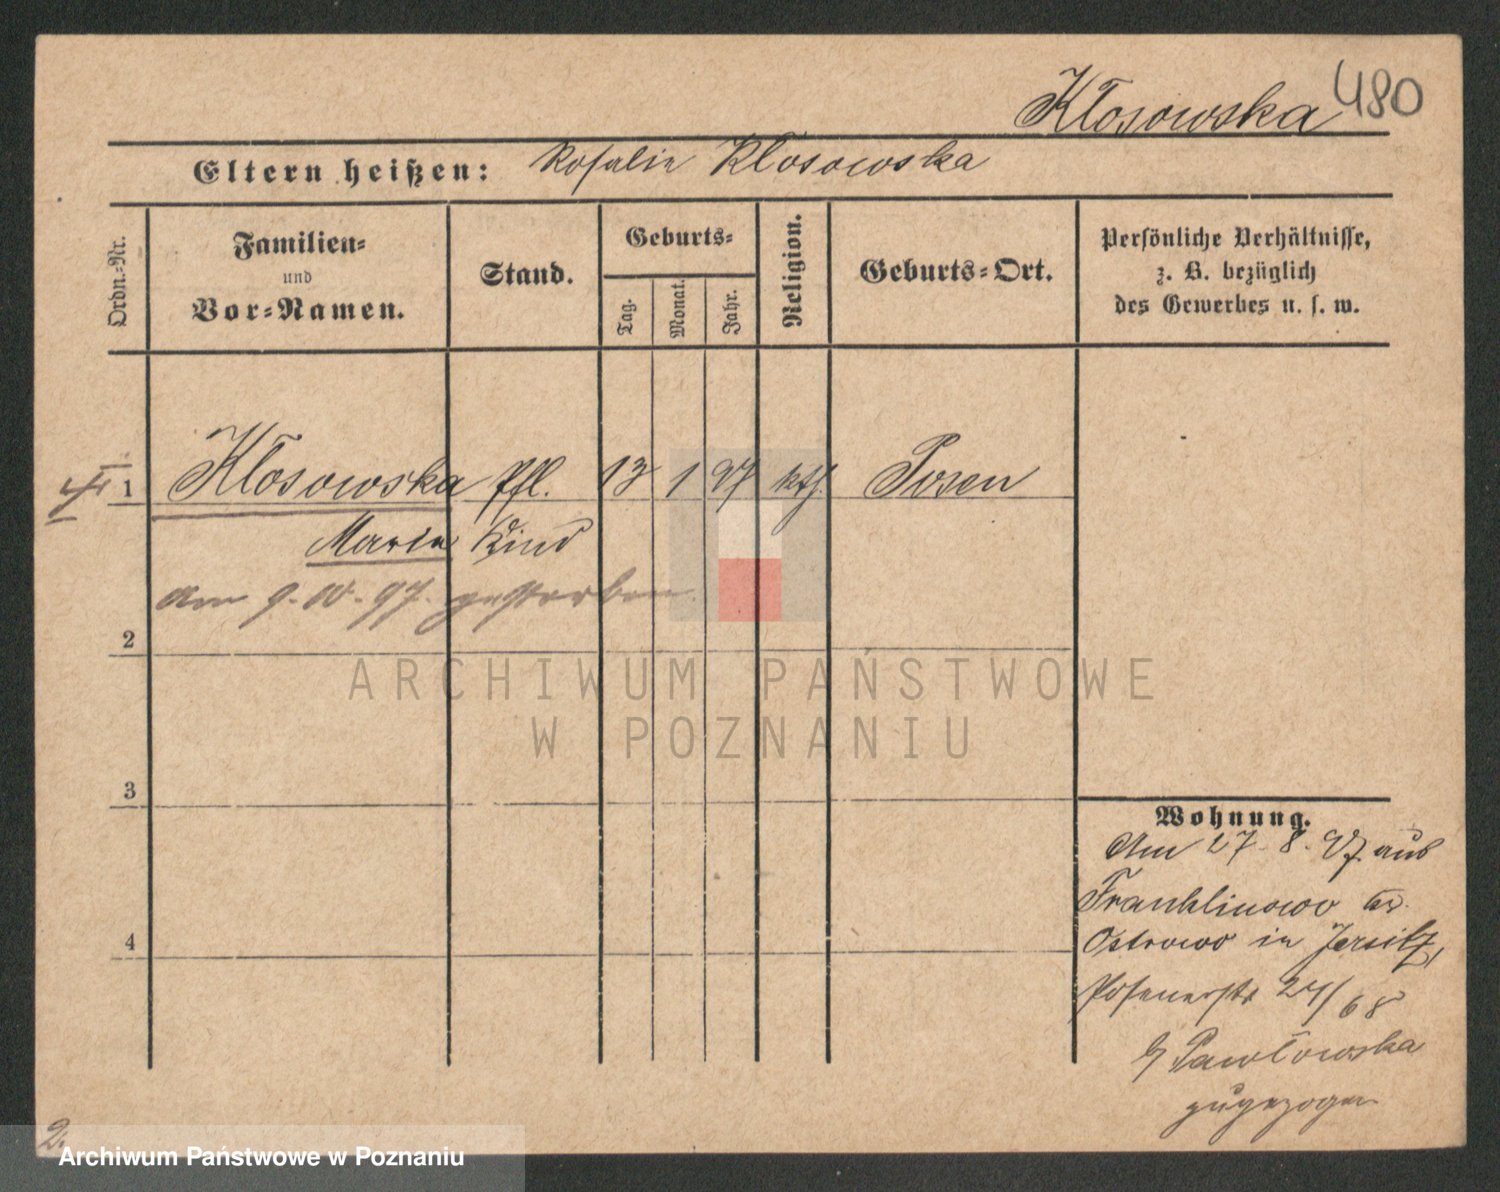 Kłosowska 480
Eltern heißen: Rosalie Kłosowska
Ordn.-Nr.
Familien-
und
Vor-Namen.
Stand.
Geburts-
Tag.
Monat.
Jahr.
Religion.
Geburts-Ort.
Persönliche Verhältnisse,
z. B. bezüglich
des Gewerbes u. s. w.
1 Kłosowska Pfl. 13 1 97 kth. Posen
Maria Kind
am 9. 10. 97. gestorben.
2
3
4
Wohnung.
Am 27. 8. 97. aus
Franklinowo Kr.
Ostrowo in Jersitz,
Posenerstr 24/68
b/ Pawłowska
zugezogen
2.
ARCHIWUM PAŃSTWOWE
W POZNANIU
Archiwum Państwowe w Poznaniu